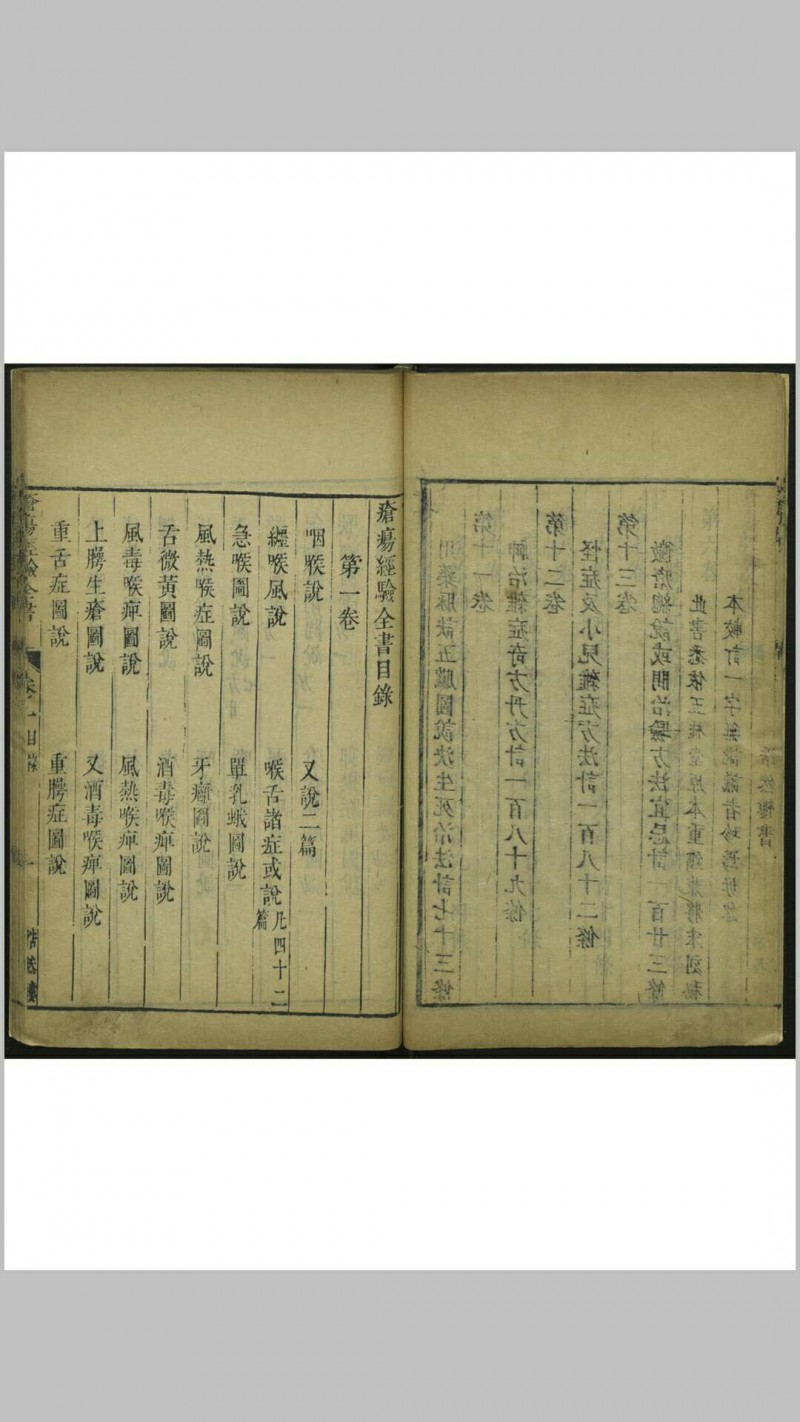 第十一卷
治雜症奇方丹方計一百八十九條
第十二卷
怪症及小兒雜症方法計一百八十二條
第十三卷
總說或問治驗方法宜忌計一百廿三條
此書悉依
本較訂一字無
瘡瘍經驗全書目錄
第一卷
咽喉說 又說二篇
纏喉風說 喉舌諸症或說凡四十二篇
急喉圖說 單乳蛾圖說
風熱喉症圖說 牙癰圖說
舌微黃圖說 酒毒喉痺圖說
風毒喉痺圖說 風熱喉痺圖說
上腭生瘡圖說 又酒毒喉痺圖說
重舌症圖說 重腭症圖說
瘡瘍經驗全書 卷一目錄 一